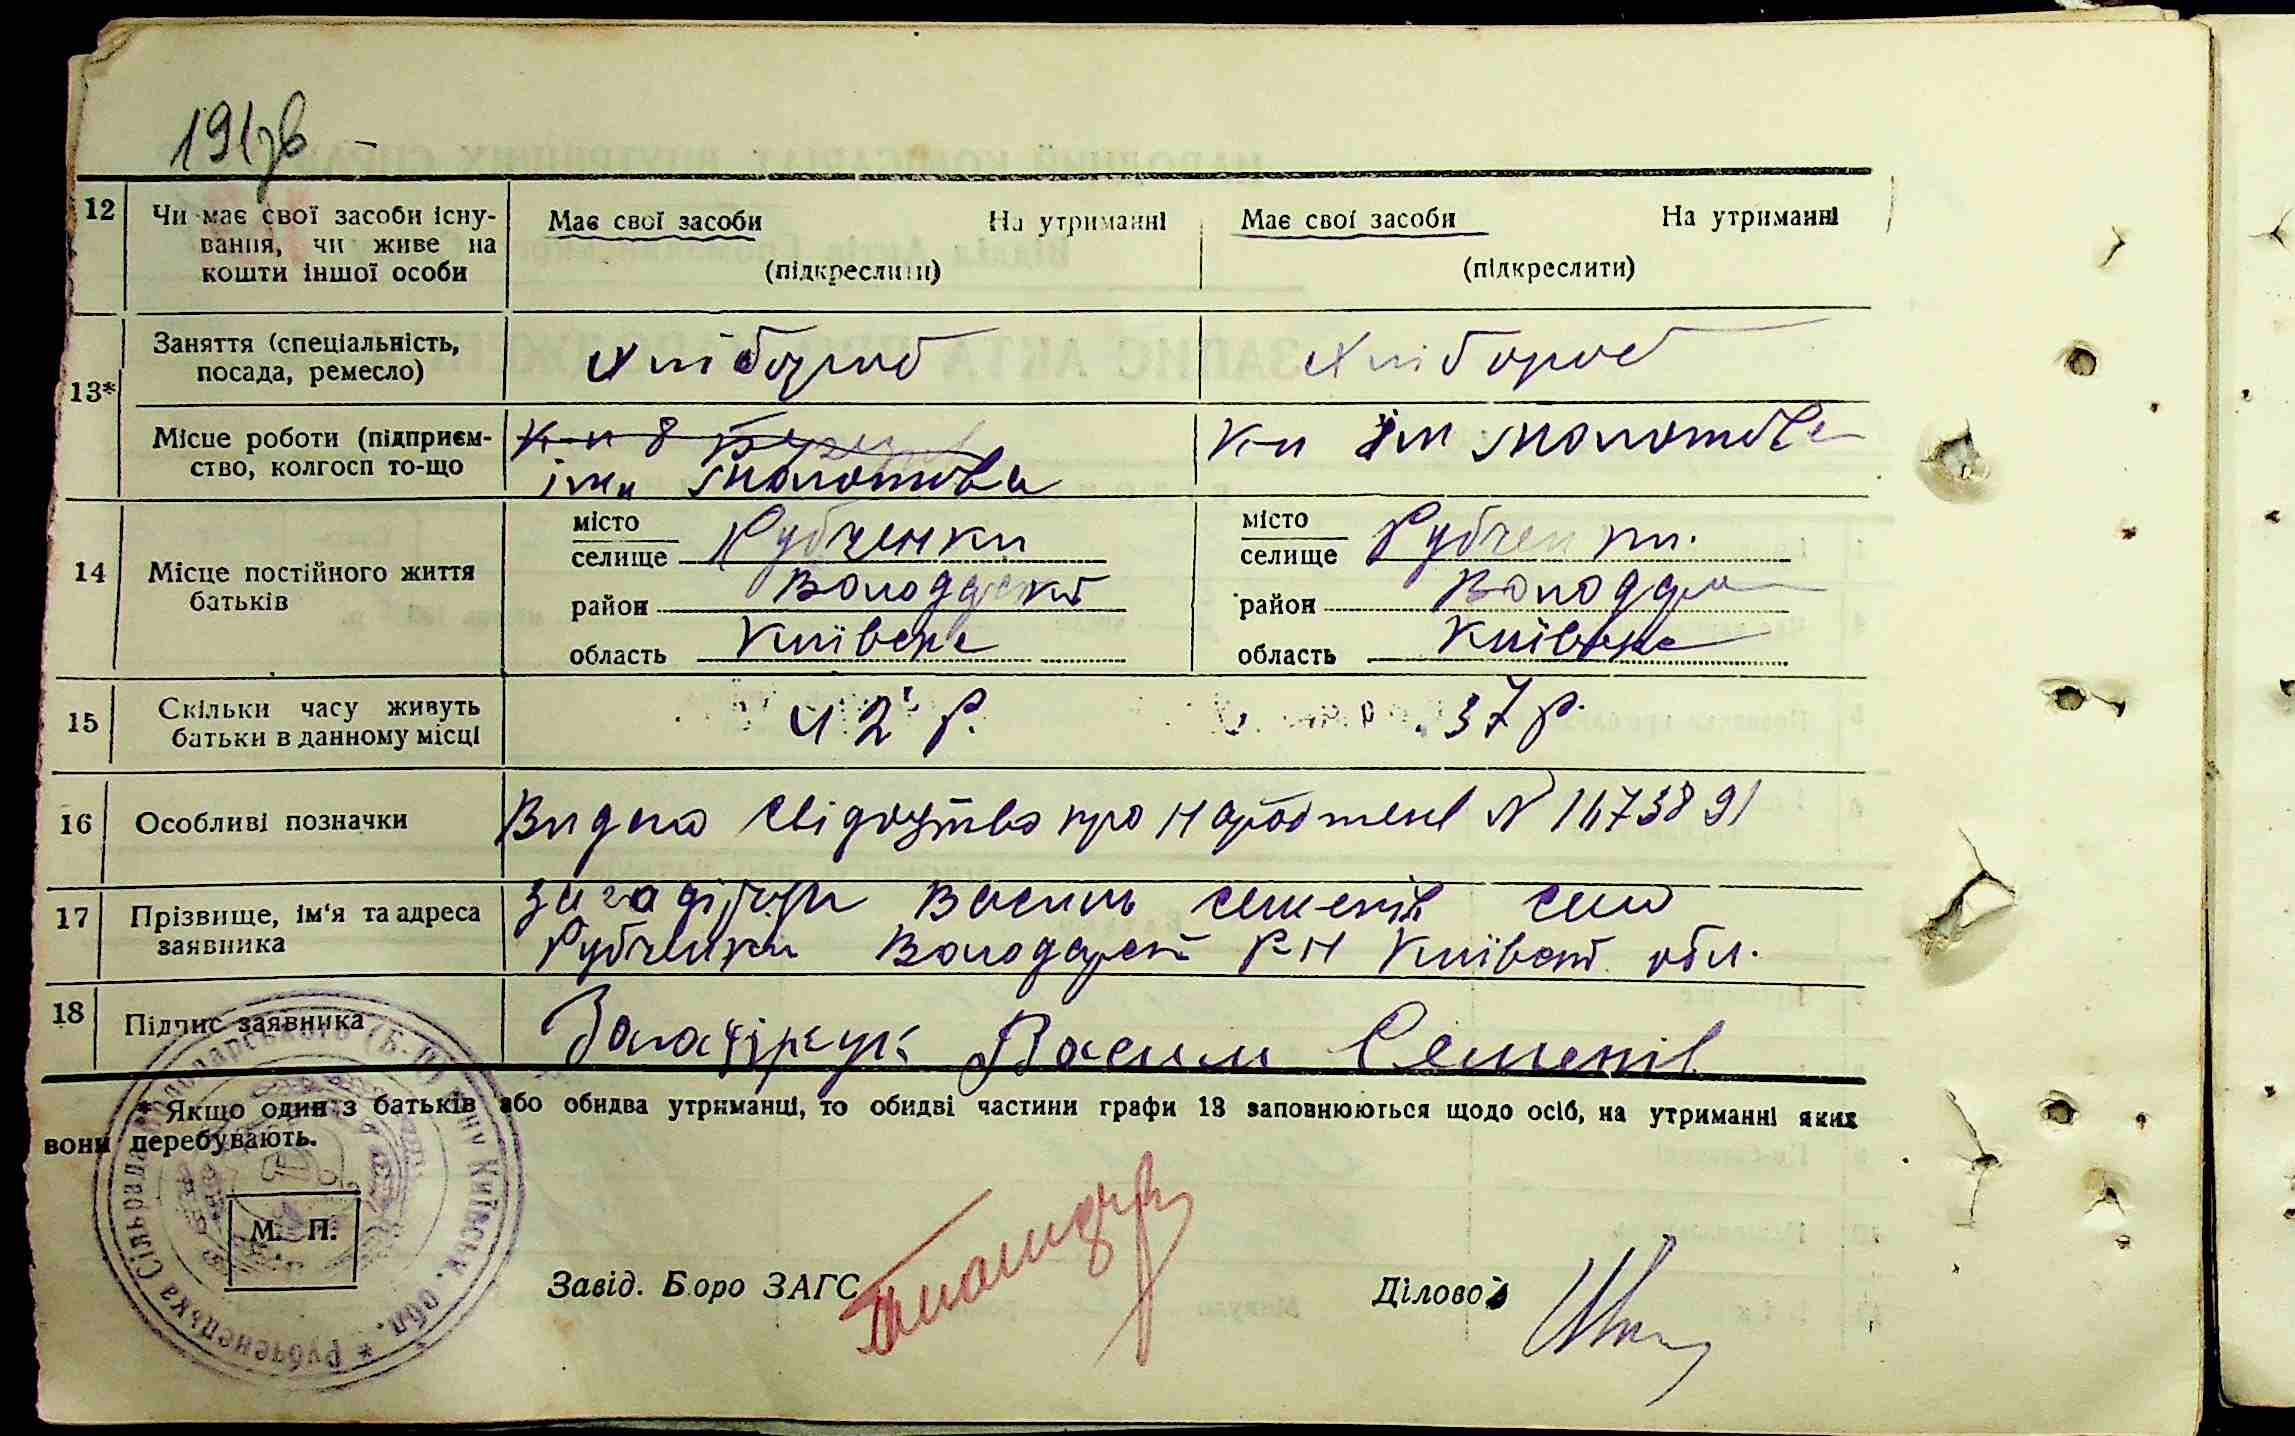 12 Чи має свої засоби існу-
вання, чи живе на
кошти іншої особи
Має свої засоби На утриманні
(підкреслити)
Має свої засоби На утриманні
(підкреслити)
13*
Заняття (спеціальність,
посада, ремесло)
хлібороб
хлібороб
Місце роботи (підприєм-
ство, колгосп то-що
к-п 8 Берез
імн Молотова
К-п ім Молотова
14 Місце постійного життя
батьків
місто
селище Рубченки
район Володарськ
область Київськ
місто
селище Рубченки.
район Володар
область Київськ
15 Скільки часу живуть
батьки в данному місці
42 р.
37 р.
16 Особливі позначки
Видно свідоцтво про народженя N
17 Прізвище, ім'я та адреса
заявника
Василь Семенів село
Рубченки Володарськ Р-Н Київськ обл.
18 Підпис заявника
Василь Семенів
* Якщо один з батьків або обидва утриманці, то обидві частини графи 13 заповнюються щодо осіб, на утриманні яких
вони перебувають.
М. П.
Завід. Бюро ЗАГС
Діловод
* Рубченецька Сільрада Володарського (Б-Ц) р-ну Київськ. обл.